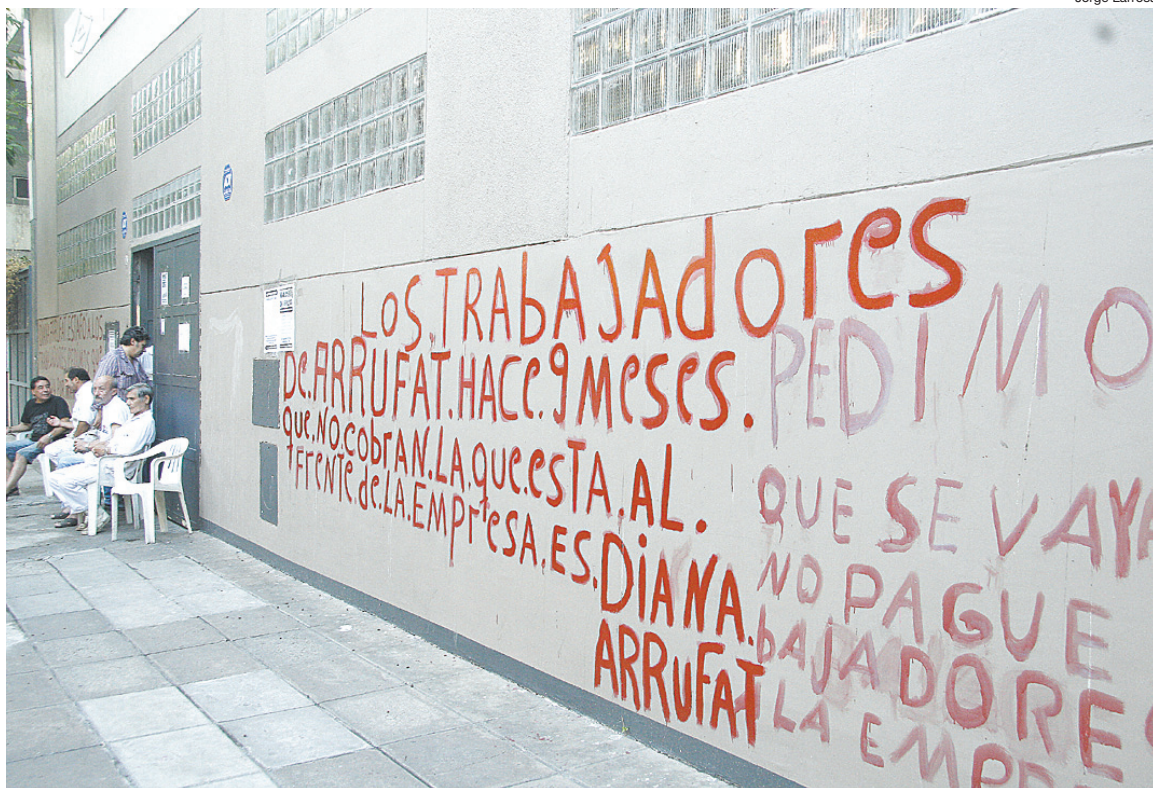 Jorge Larros
LOS.TRAbAJAdores
De.ARRUFAT.HACe.9Meses.
que.NO.CobrAN.LA.que.esTA.AL.
FreNTe.de.LA.EMPresA.ES.DIANA.
ARRuFAT
PEDIMO
QUE SE VAYA
NO PAGUE
bAJADORES
LA EMPR